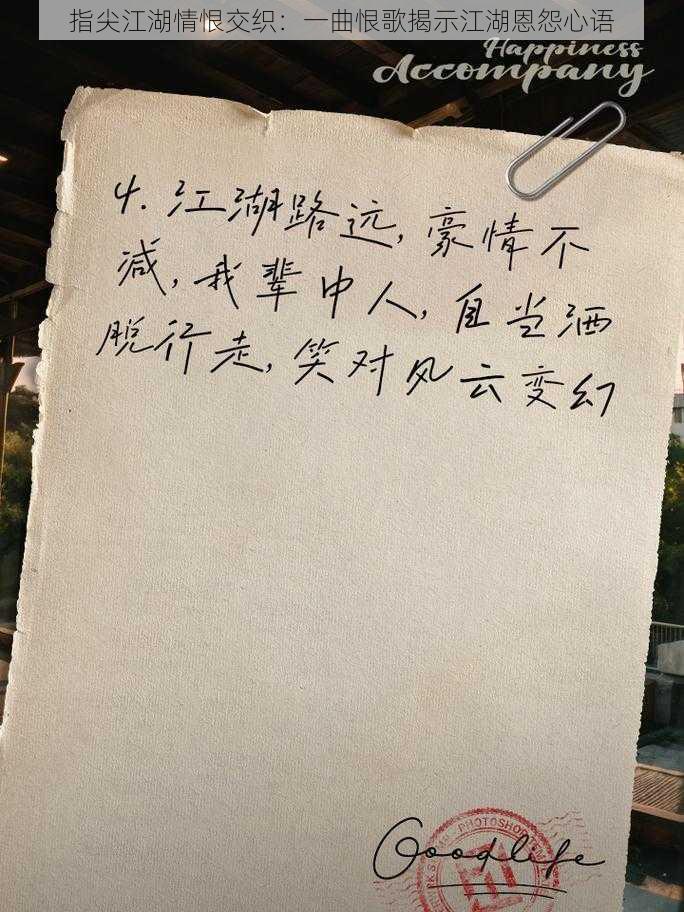 指尖江湖情恨交织：一曲恨歌揭示江湖恩怨心语
Happiness
Accompany
4. 江湖路远，豪情不
减，我辈中人，自当洒
脱行走，笑对风云变幻
PHOTOSHOP
Goodlife